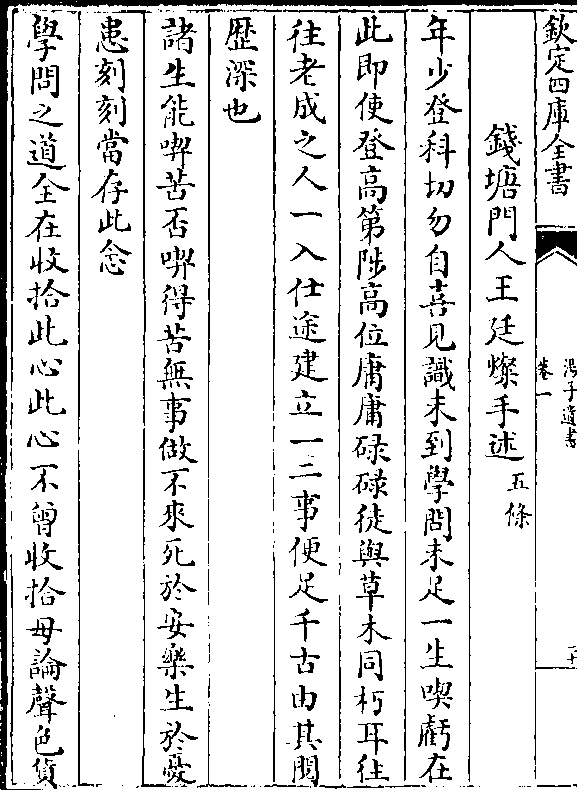 欽定四庫全書
湯子遺書
卷一
錢塘門人王廷燦手述五條
年少登科切勿自喜見識未到學問未足一生喫虧在
此即使登高第陟高位庸庸碌碌徒與草木同朽耳往
往老成之人一入仕途建立一二事便足千古由其閱
歴深也
諸生能喫苦否喫得苦無事做不來死於安樂生於憂
患刻刻當存此念
學問之道全在收拾此心此心不曾收拾毋論聲色貨